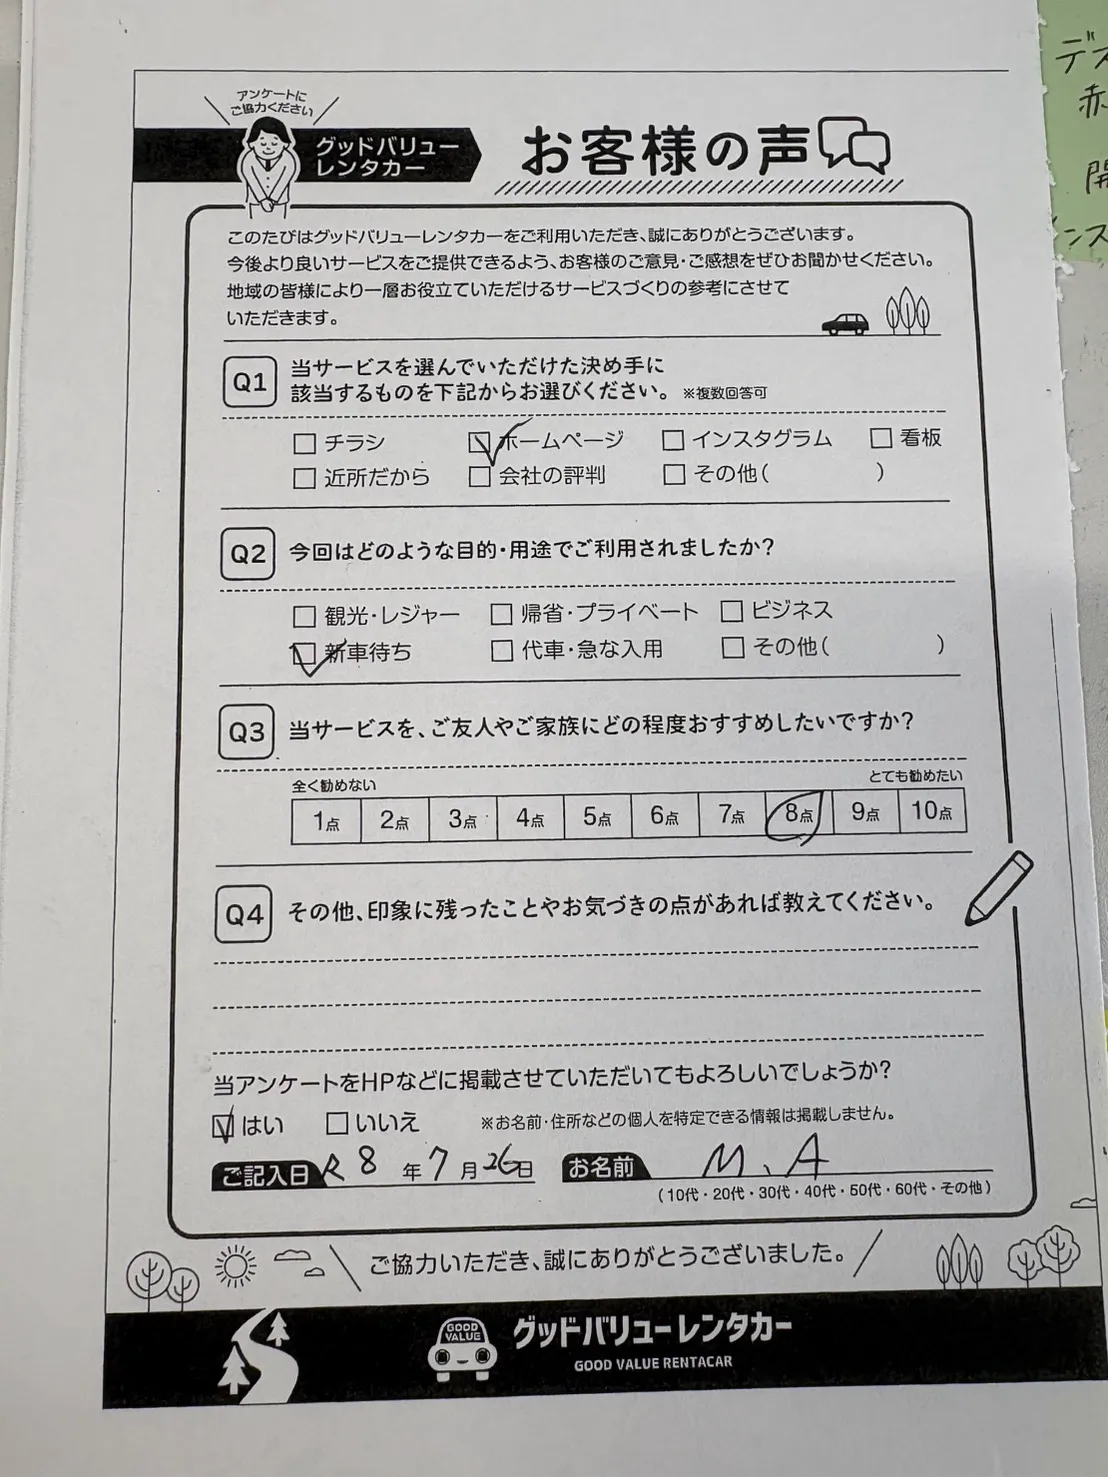 アンケートに
ご協力ください
グッドバリュー
レンタカー
お客様の声
このたびはグッドバリューレンタカーをご利用いただき、誠にありがとうございます。
今後より良いサービスをご提供できるよう、お客様のご意見・ご感想をぜひお聞かせください。
地域の皆様により一層お役立ていただけるサービスづくりの参考にさせて
いただきます。
Q1 当サービスを選んでいただけた決め手に
該当するものを下記からお選びください。 ※複数回答可
□ チラシ ☑ ホームページ □ インスタグラム □ 看板
□ 近所だから □ 会社の評判 □ その他( )
Q2 今回はどのような目的・用途でご利用されましたか?
□ 観光・レジャー □ 帰省・プライベート □ ビジネス
☑ 新車待ち □ 代車・急な入用 □ その他( )
Q3 当サービスを、ご友人やご家族にどの程度おすすめしたいですか?
全く勧めない とても勧めたい
1点 2点 3点 4点 5点 6点 7点 8点 9点 10点
Q4 その他、印象に残ったことやお気づきの点があれば教えてください。
当アンケートをHPなどに掲載させていただいてもよろしいでしょうか?
☑ はい □ いいえ ※お名前・住所などの個人を特定できる情報は掲載しません。
ご記入日 R 8 年 7 月 26 日 お名前 M、A
(10代・20代・30代・40代・50代・60代・その他)
ご協力いただき、誠にありがとうございました。
GOOD
VALUE
グッドバリューレンタカー
GOOD VALUE RENTACAR
デス
赤
開
ンス